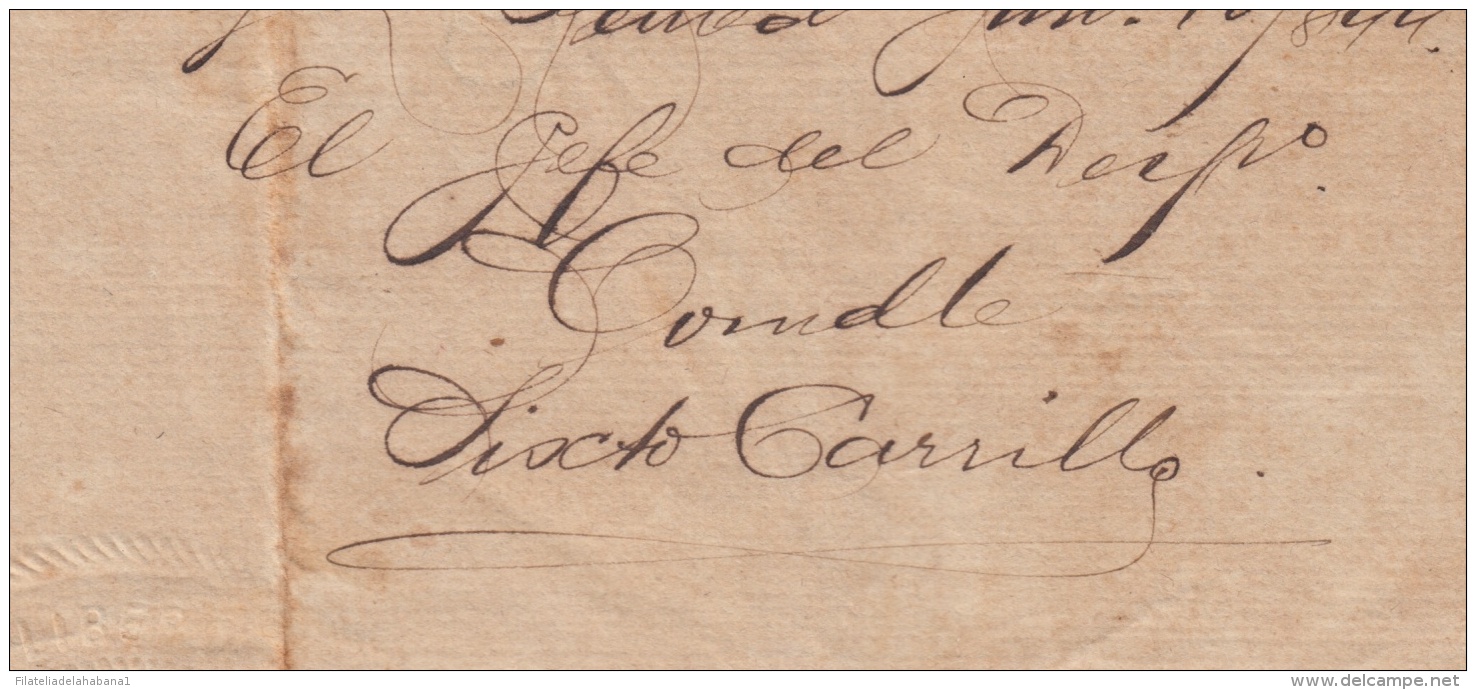 El Jefe del Despº.
Comdte
Sixto Carrillo.
Filateliadelahabana1
www.delcampe.net